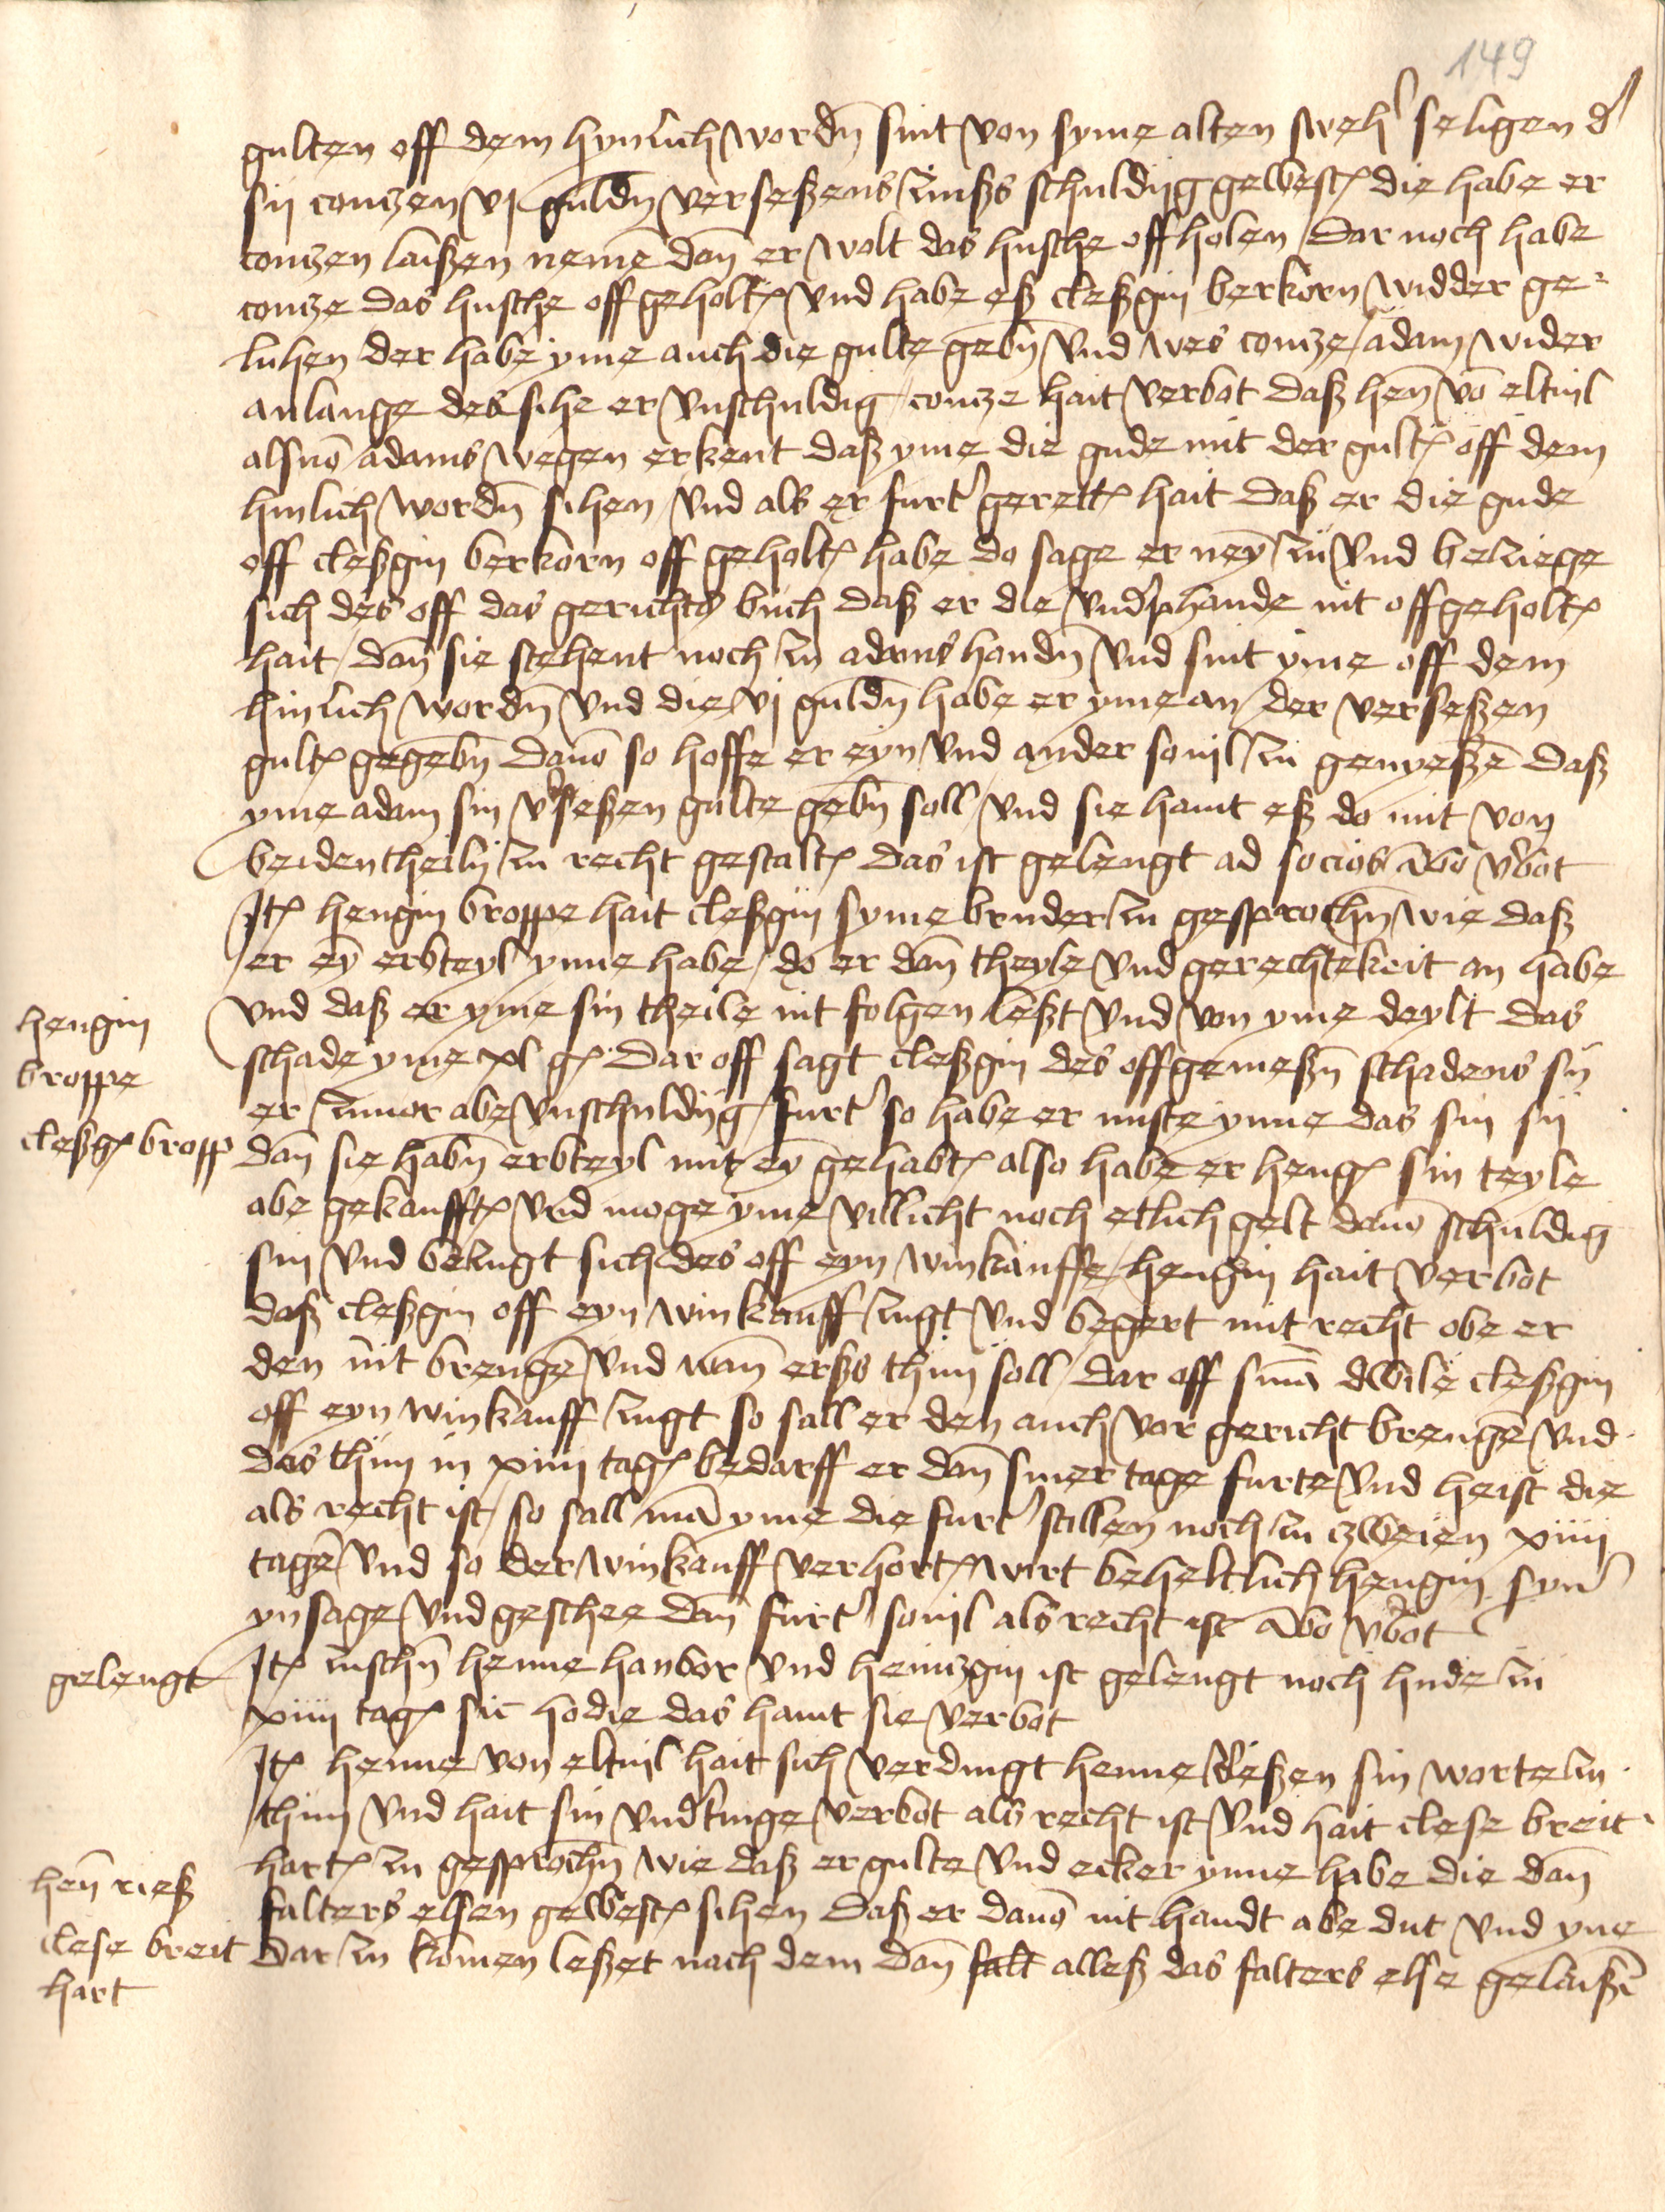 149
gulten off dem hynlich wordn̄ sint von syme alten sweh' seligen d'
sij contzen vj guldn̄ verseßens zinßs schuldijg gewest die habe er
contzen laißen neme dan̄ er wolt das husche offholen Dar noch habe
contze das husche off geholt und habe eß cleßgin berkorn widder ge-
luhen der habe yme auch die gulte gebn̄ und wes contze adam wider
anlange des sihe er unschuldig contze hait verbot daß hen̄ vō eltvil
als vō adams wegen erkent daß yme die gude mit der gult off dem
hinlich wordn̄ sihen und als er furt' gerett hait daß er die gude
off cleßgin berkorn off geholt habe do sage er neyn zu und beziege
sich des off das gerichts buch daß er die und'phande nit offgeholt
hait dan̄ sie stehent noch in adams handn̄ und sint yme off dem
hinlich wordn̄ und die vj guldn̄ habe er yme an der verseßen
gult gegebn̄ davō so hoffe er eyn und ander sovil zu genyeßē daß
yme adam sin v'seßen gulte gebn̄ soll und sie haint eß do mit von
beiden theiln zu recht gestalt das ist gelengt ad socios ābo v'bot
Jt hengin broppe hait cleßgin syme bruder zu gesprochn̄ wie daß
er eȳ erbteyl ynne habe do er dan̄ theyle und gerechtekeit an habe
und daß er yme sin theile nit folgen leßt und von yme deylt das
schade yme xl g Dar off sagt cleßgin des offgemeßn̄ schadens sij
er zuvor abe unschuldijg furt' so habe er nuste ynne das sin sij
dan̄ sie habn̄ erbteyl mit eȳ gehabt also habe er heng sin teyle
abe gekaufft und moge yme villicht noch etlich gelt davō schuldig
sin und bezugt sich des off eyn winkauffe hengin hait verbot
daß cleßgin off eyn winkauff zugt und begert mit recht obe er
den nit brengē und wan̄ erßs thun soll dar off sn̄ia dwile cleßgin
off eyn winkauff zugt so sall er den auch vor gericht brengē und
das thun in xiiij tag bedarff er dan̄ siner tage furte und heist die
als recht ist so sall mā yme die furt' stillen noch zu zweien xiiij
tagē und so der winkauff verhort wirt beheltlich hengin syn'
ynsage und geschee dan̄ furt' sovil als recht ist ābo v'bot
Jt zuschn̄ henne hanbor und heintzgin ist gelengt noch hude zu
xiiij tag sic hodie das haint sie verbot
Jt henne von eltvil hait sich verdingt henne rießen sin worte zu
thun und hait sin und'tinge verbot als recht ist und hait clese breit
hart zu gesprochn̄ wie daß er gulte und ecker ynne habe die dan̄
falters elsen gewest sihen daß er davō nit handt abe dut und yne
dar zu komen leßet nach dem dan̄ falt alleß das falters else gelaißē
hengin
broppe
cleßg bropp
gelengt
hen̄ rieß
clese breit
hart